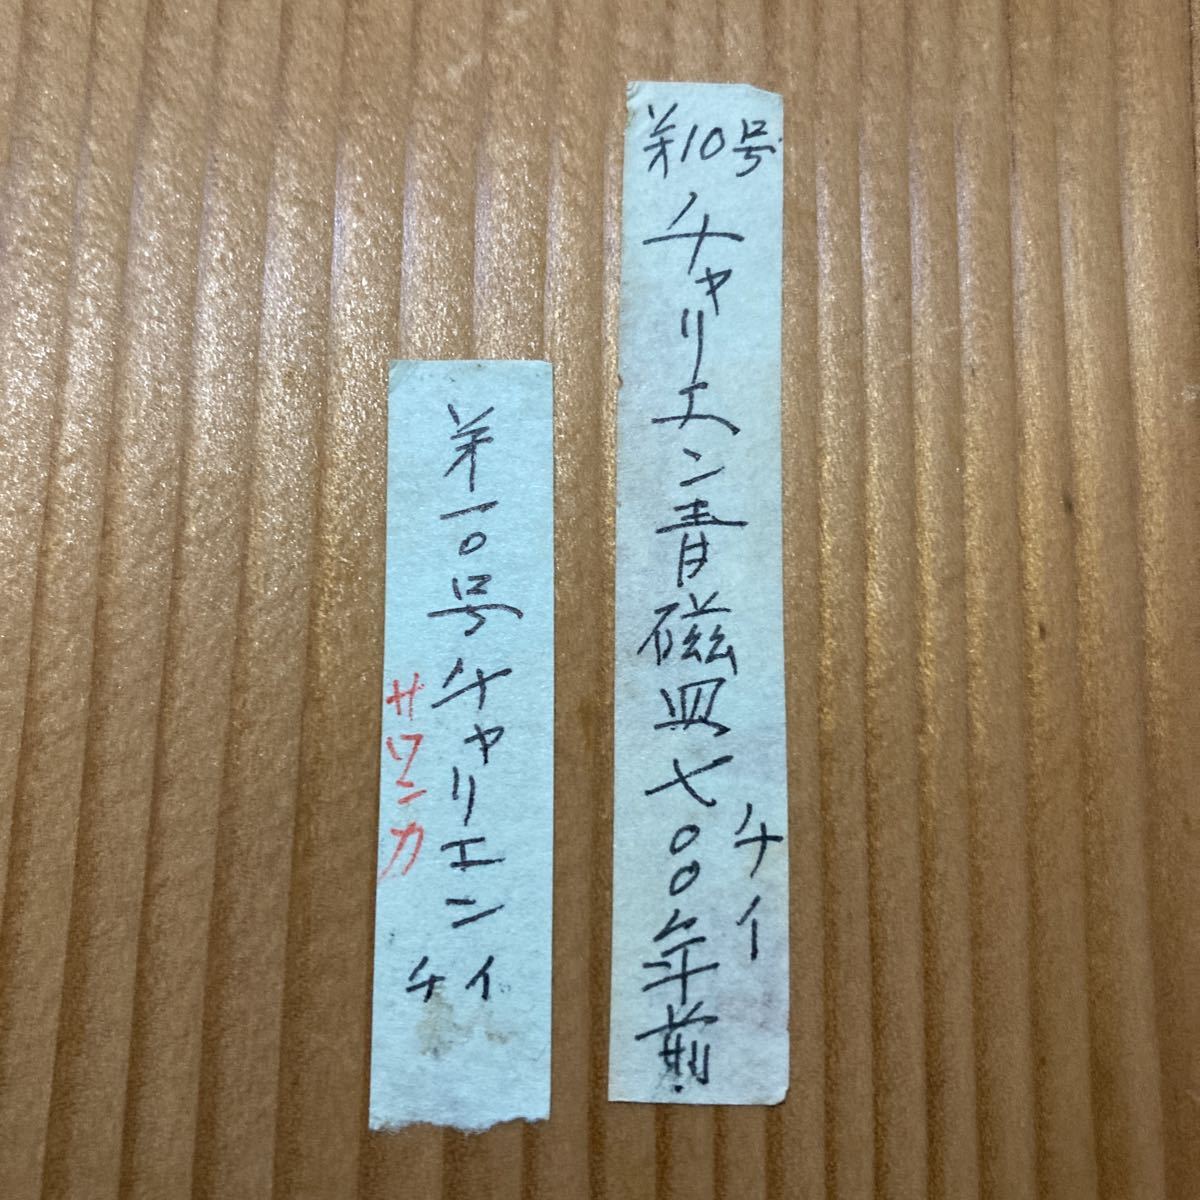 第10号
チャリエン青磁皿七〇〇年前
チイ
第一〇号チャリエン
サワニカ
チイ